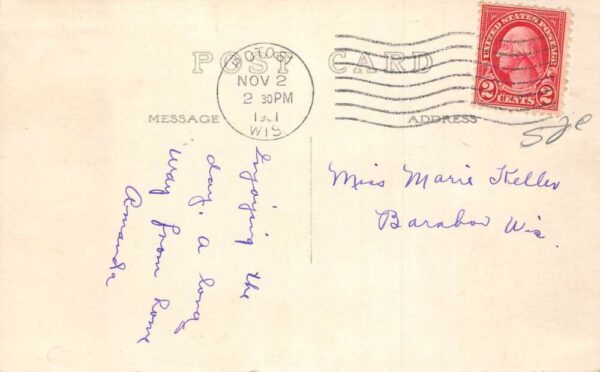 POST CARD
POTOSI
NOV 2
2 30PM
WIS.
UNITED STATES POSTAGE
2 CENTS 2
MESSAGE
ADDRESS
Enjoying the
day. A long
way from home
Amanda
Miss Marie Keller
Baraboo Wis.